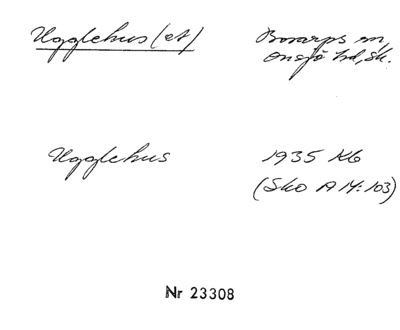 Ugglehus (et)
Bosarps sn,
Onsjö hd, Sk.
Ugglehus
1935 Kb
(Sko A 14:103)
Nr 23308